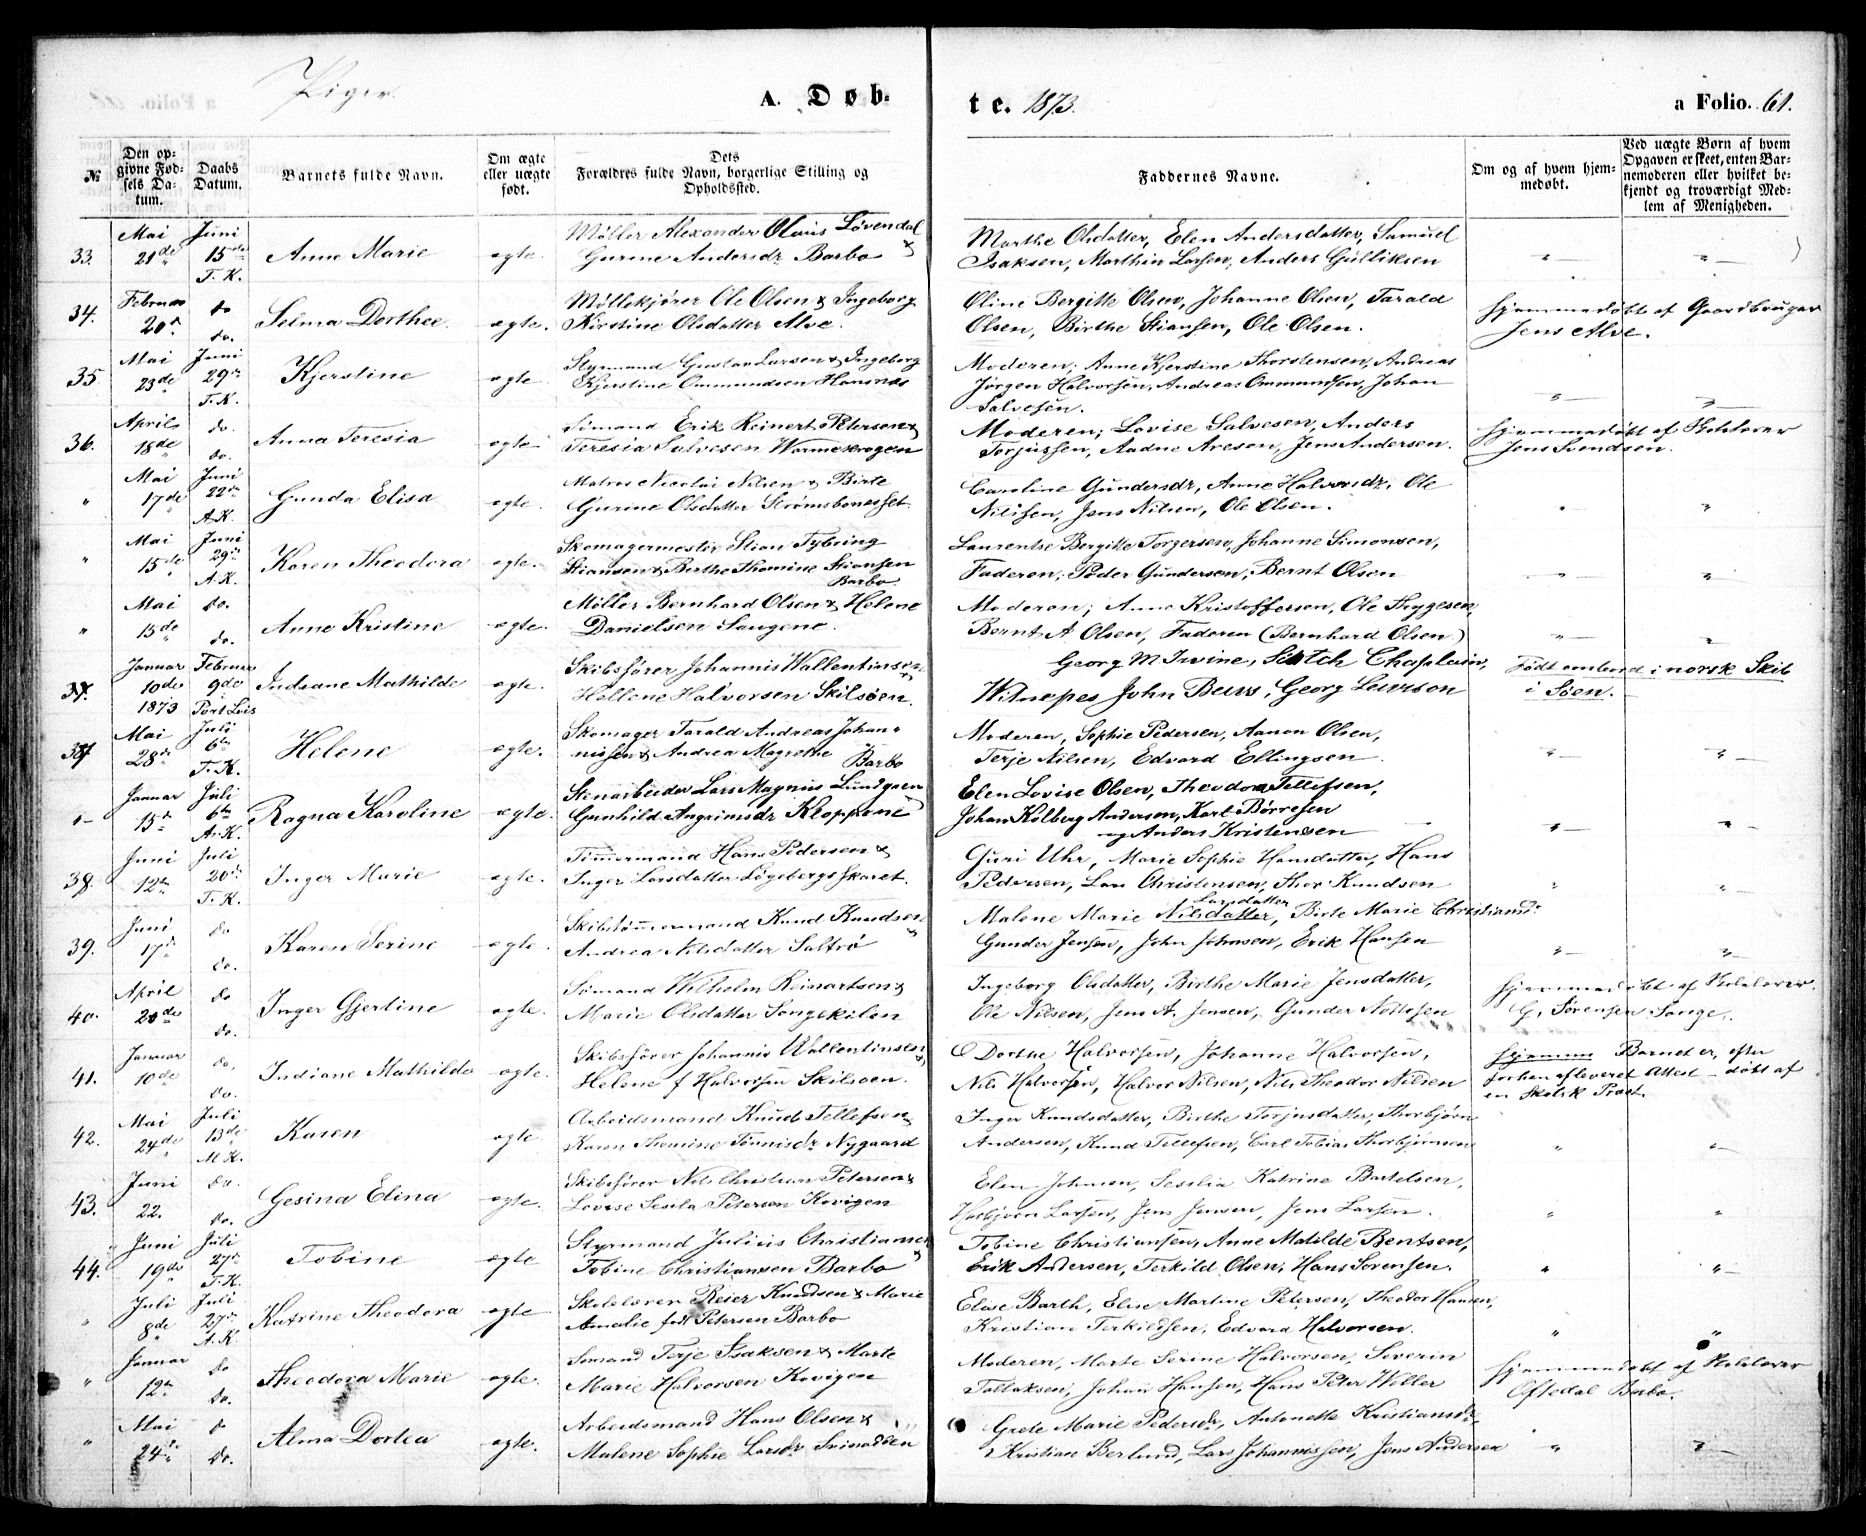 Piger.
A. Døb-
te. 1873.
a Folio. 61.
№
Den op-
givne Fød-
sels Da-
tum.
Daabs
Datum.
Barnets fulde Navn.
Om ægte
eller uægte
født.
Dets
Forældres fulde Navn, borgerlige Stilling og
Opholdssted.
Faddernes Navne.
Om og af hvem hjem-
medøbt.
Ved uægte Børn af hvem
Opgaven er skeet, enten Bar-
nemoderen eller hvilket be-
kjendt og troværdigt Med-
lem af Menigheden.
33. Mai 21de Juni 15de T. K. Anne Marie ægte. Møller Alexander Olaus Løvendal &
Gurine Andersdr Barbo
Marthe Olsdatter, Elen Andersdatter, Samuel
Isaksen, Marthin Larsen, Anders Gulliksen
34. Februar 20de do do. Selma Dorthee. ægte. Møllekjører Ole Olsen & Ingeborg
Kirstine Olsdatter Alve.
Oline Bergitte Olsen, Johanne Olsen, Tarald
Olsen, Birthe Stiansen, Ole Olsen.
Hjemmedøbt af Gaardbruger
Jens Alve.
35. Mai 23de Juni 29de T. K. Kjerstine ægte. Styrmand Gustav Larsen & Ingeborg
Kjerstine Ommundsen Hansnæs
Moderen; Anne Kjerstine Thorstensen, Andreas
Jörgen Halvorsen, Andreas Ommundsen, Johan
Salvesen.
36. April 18de do. do. Anna Teresia ægte Sömand Erik Reinert Petersen &
Teresia Salvesen Warmekrogen
Moderen; Lovise Salvesen, Anders
Torjussen, Aadne Aresen, Jens Andersen.
Hjemmedøbt af Skolelærer
Jens Svendsen.
" Mai 17de Juni 22de A. K. Gunda Elisa ægte. Matros Nicolai Nilsen & Birte
Gurine Olsdatter Strömsbonesset.
Caroline Gundersdr, Anne Halvorsdr, Ole
Nilsen, Jens Nilsen, Ole Olsen.
" Mai 15de Juni 29de A. K. Karen Theodora ægte. Skomagermester Stian Tybring
Stiansen & Birthe Thomine Stiansen
Barbo
Laurentse Bergitte Torgersen, Johanne Simonsen,
Faderen; Peder Gundersen; Bernt Olsen
" Mai 15de do. do. Anne Kristine ægte. Møller Bernhard Olsen & Helene
Danielsen Songene.
Moderen; Anne Kristoffersen, Ole Thygesen,
Bernt A Olsen, Faderen (Bernhard Olsen)
37. Januar 10de 1873 Februar 9de Port Lois Indiane Mathilde ægte. Skibsfører Johannis Wallentinsen &
Hellene Halvorsen Skilsöen.
Georg M Irvine, Scotch Chaplain,
Witnesses John Burs, Georg Leurson
Født ombord i norsk Skib
i Søen.
38. Mai 28de Juli 6te T. K. Helene ægte. Skomager Tarald Andreas Johan-
nissen & Andrea Magrethe Barbo
Moderen, Sophie Pedersen, Aanon Olsen,
Terje Nilsen, Edvard Ellingsen
" Januar 15de Juli 6te A. K. Ragna Karoline ægte. Stenarbeider Lars Magnus Lundgren
Gunhild Asgrimsdr Kloppene
Elen Lovise Olsen, Theodora Tellefsen,
Johan Kolberg Andersen, Karl Börresen
og Anders Kristensen
38. Juni 12te Juli 20de T. K. Inger Marie ægte. Timmermand Hans Pedersen &
Inger Larsdatter Lögebergsskaret.
Guri Uhr, Marie Sophie Hansdatter, Hans
Pedersen, Lars Christensen, Thor Knudsen
39. Juni 17de do do. Karen Serine ægte. Skibstömmermand Knud Knudsen &
Andrea Nilsdatter Saltrö
Malene Marie Nilsdatter Larsdatter, Birte Marie Christiansdr
Gunder Jensen, John Johnsen, Erik Hansen
40. April 20de do do. Inger Gjertine ægte. Sömand Wilhelm Reinartsen &
Marie Olsdatter Songekilen
Ingeborg Olsdatter, Birthe Marie Jensdatter,
Ole Nilsen, Jens A. Jensen, Gunder Nottosen
Hjemmedöbt af Skolelærer
G. Sörensen Songe.
41. Januar 10de do. do. Indiane Mathilde ægte. Skibsfører Johannis Wallentinsen &
Helene f Halvorsen Skilsöen.
Dorthe Halvorsen, Johanne Halvorsen,
Nils Halvorsen, Halvor Nilsen, Nils Theodor Nilsen
Hjemme Barnet er, efter
forhen afleveret Attest döbt af
en Skotsk Præst.
42. Mai 24de Juli 13de M. K. Karen ægte. Arbeidsmand Knud Tellefsen &
Karen Thomine Tönnisdr Nygaard
Inger Knudsdatter, Birthe Torjusdatter, Thorbjörn
Andersen, Knud Tellefsen, Carl Tobias Thorbjörnsen
43. Juni 22. do. do. Gesina Elina ægte. Skibsförer Nils Christian Petersen &
Lovise Sesilia Petersen Kovigen
Elen Johnsen, Sesilia Katrine Bartelsen,
Hasbjörn Larsen, Jens Jensen, Jens Larsen.
44. Juni 19de Juli 27de T. K. Tobine ægte Styrmand Julius Christiansen &
Tobine Christiansen Barbo
Tobine Christiansen, Anne Matilde Bentsen,
Erik Andersen, Terkild Olsen, Hans Sörensen.
" Juli 8de Juli 27de A. K. Katrine Theodora ægte Skolelærer Reier Knudsen & Marie
Amalie født Petersen Barbo
Elise Barth, Elise Martine Petersen, Theodor Hansen,
Kristian Terkildsen, Edvard Halvorsen.
" Januar 12te do do. Theodora Marie ægte. Sömand Terje Isaksen & Marte
Marie Halvorsen Kovigen
Moderen, Marte Serine Halvorsen, Severin
Tallaksen, Johan Hansen, Hans Peter Woller
Hjemmedöbt af Skolelærer
Oftedal Barbo.
" Mai 24de do do. Alma Dortea ægte. Arbeidsmand Hans Olsen &
Malene Sophie Larsdr
Grete Marie Pedersdr, Antonette Kristiansdr,
Kristian Berlund, Lars Johannissen, Jens Andersen